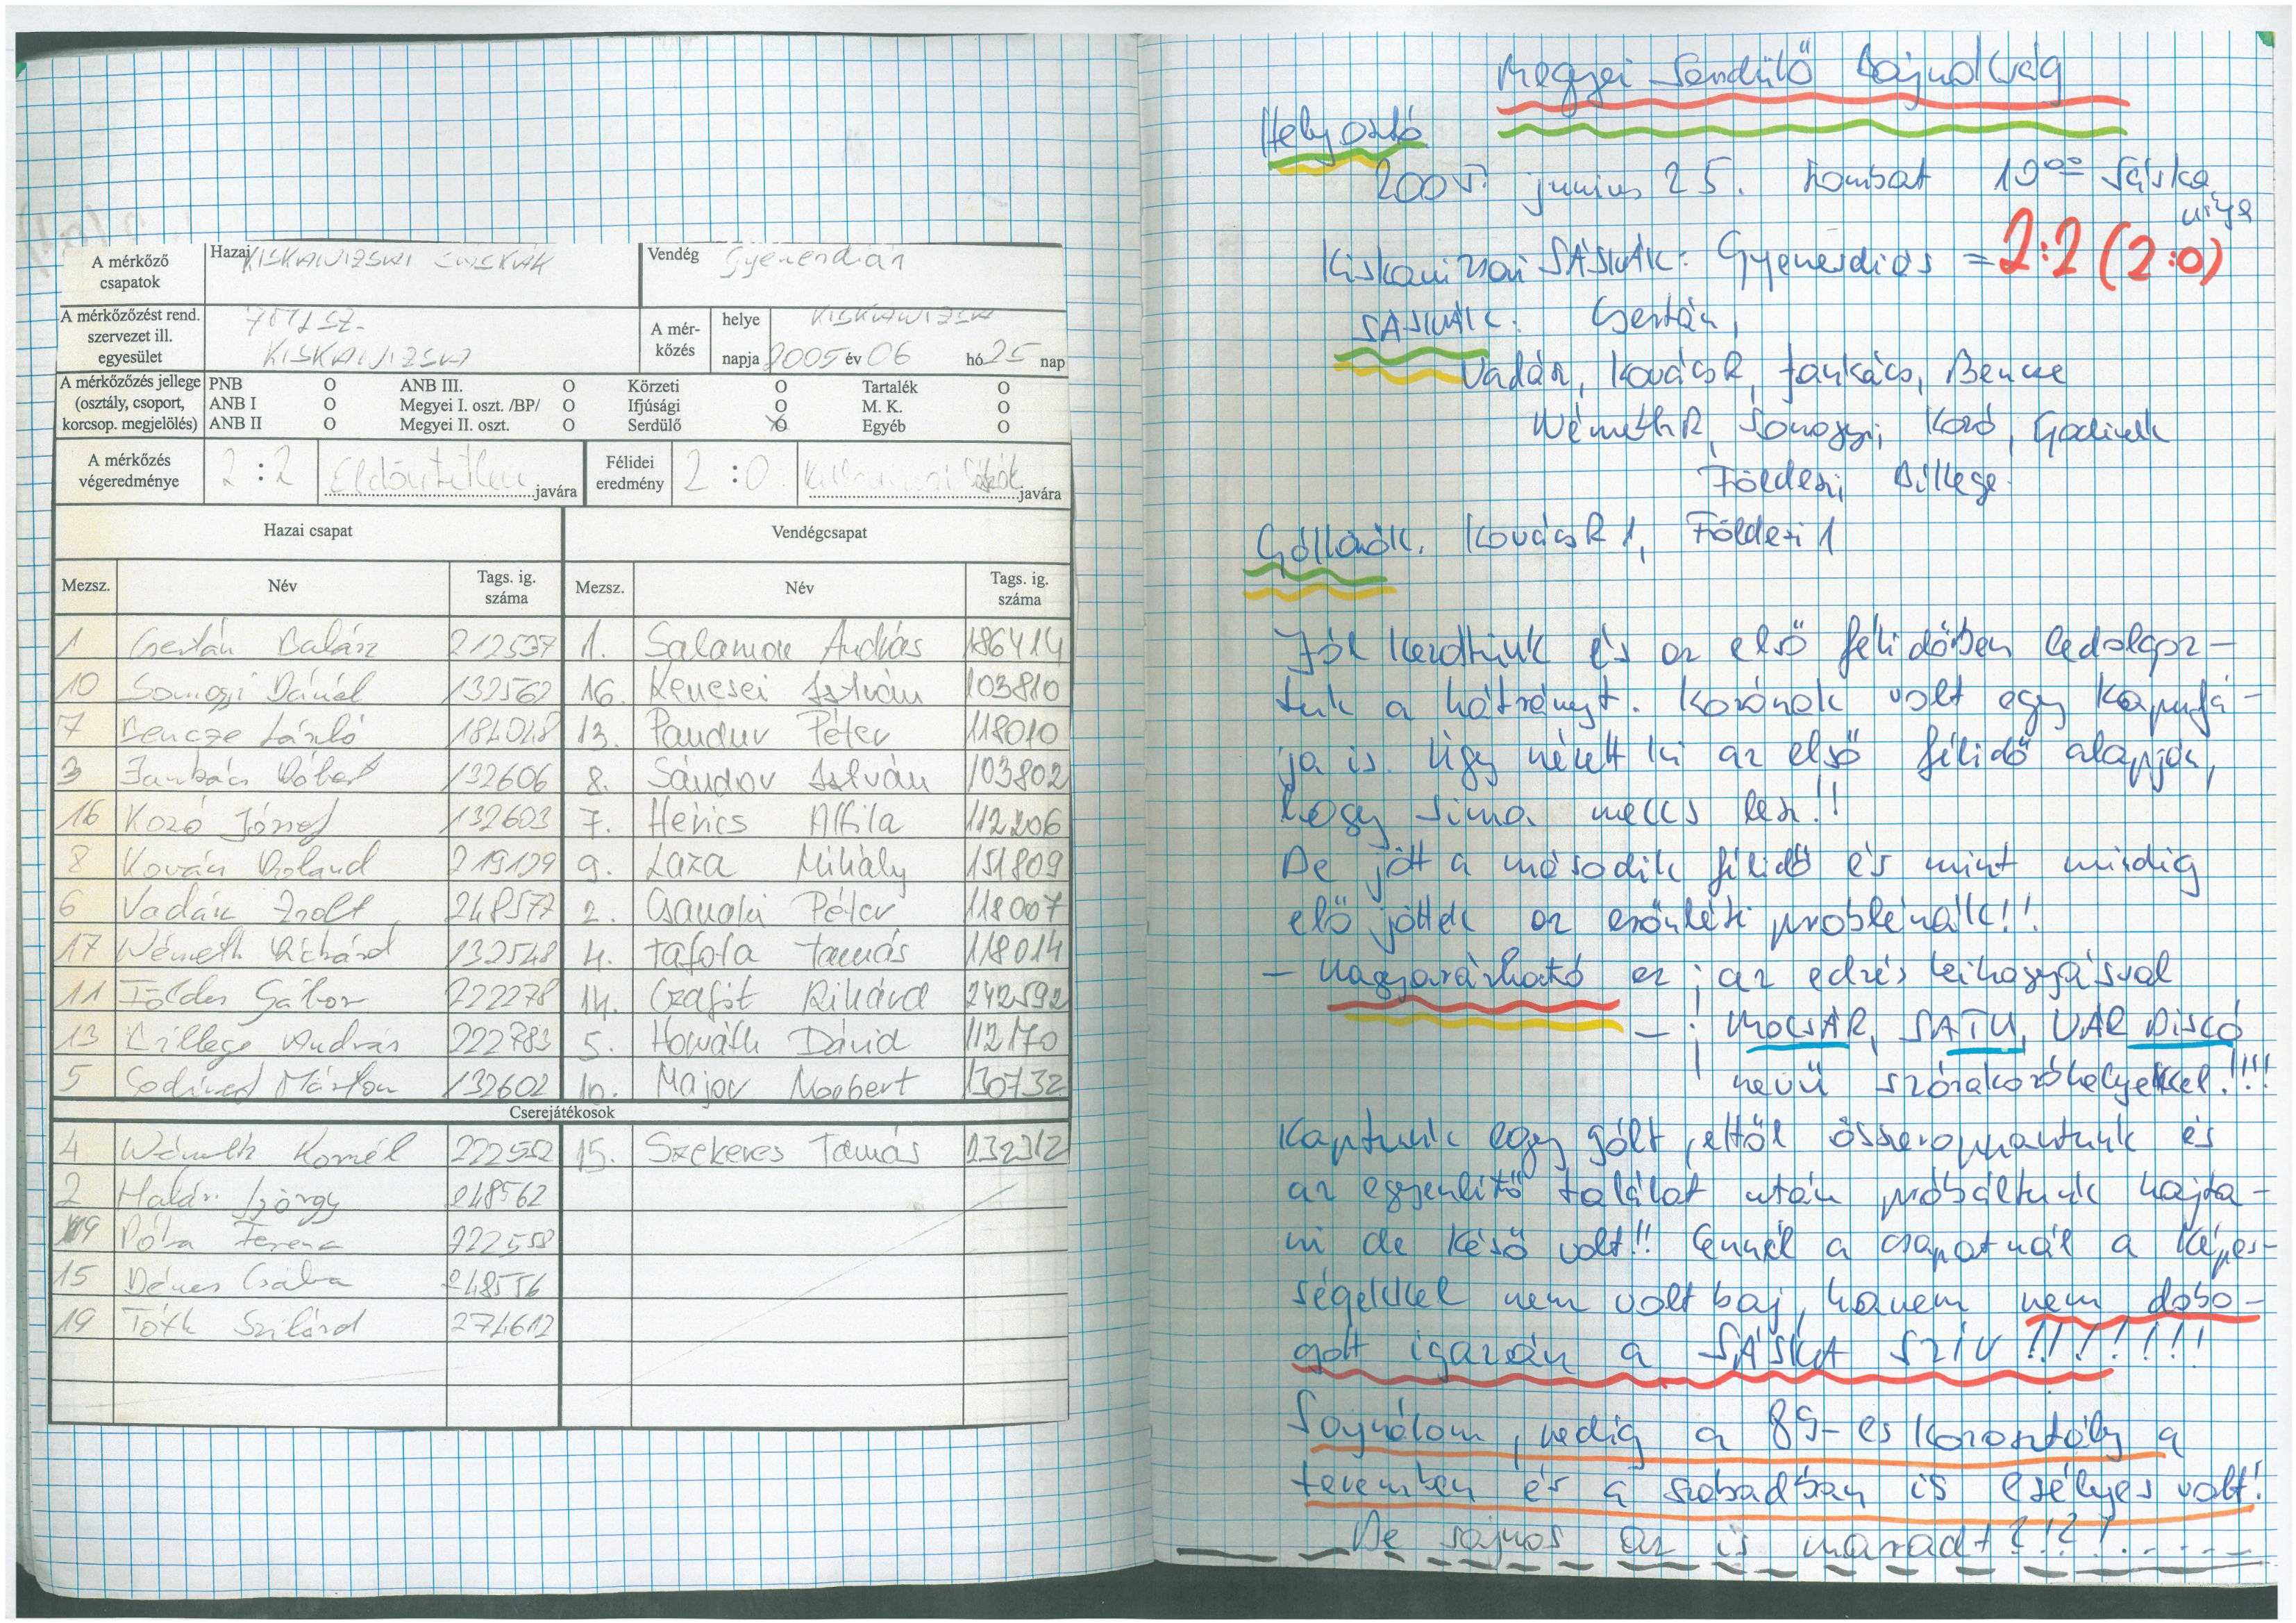 A mérkőző csapatok
Hazai KISKANIZSAI SÁSKÁK
Vendég Gyenesdiás
A mérkőzőzést rend. szervezet ill. egyesület
KISKANIZSA
A mérkőzés
helye KISKANIZSA
napja 2005 év 06 hó 25 nap
A mérkőzőzés jellege (osztály, csoport, korcsop. megjelölés)
PNB O ANB III. O Körzeti O Tartalék O
ANB I O Megyei I. oszt. /BP/ O Ifjúsági O M. K. O
ANB II O Megyei II. oszt. O Serdülő O Egyéb O
A mérkőzés végeredménye 2:2 Eldöntetlen javára
Félidei eredmény 2:0 Kiskanizsai Sáskák javára
Hazai csapat Vendégcsapat
Mezsz. Név Tags. ig. száma Mezsz. Név Tags. ig. száma
1 Gertán Balázs 212537 1. Salamon András 186414
10 Somogyi Dániel 132562 16. Kenesei István 103810
7 Bencze László 184048 13. Pandur Péter 118010
3 Jankács Róbert 132606 8. Sándor István 103802
16 Kozó József 132603 7. Herics Attila 112206
8 Kovács Roland 219129 9. Laza Mihály 151809
6 Vadász Zsolt 248577 2. Csanaki Péter 118007
17 Németh Richárd 132548 4. Tafota Tamás 118014
11 Földesi Gábor 222278 14. Czafit Rikárd 242592
13 Billege András 222783 5. Horváth Dávid 112170
5 Godinek Márton 132602 10. Major Norbert 130732
Cserejátékosok
4 Németh Kornél 222552 15. Szekeres Tamás 132312
2 György 248562
Póka Ferenc 222558
15 Dénes Csaba 248556
19 Tóth Szilárd 274612
Megyei Serdülő Bajnokság
Helyosztó
2005. junius 25. szombat 10⁰⁰ Sáska
Kiskanizsai SÁSKÁK: Gyenesdiás = 2:2 (2:0)
SÁSKÁK: Gertán,
Vadász, Kovács R, Jankács, Bencze
Németh R, Somogyi, Kozó, Godinek
Földesi, Billege.
Góllövők: Kovács R 1, Földesi 1
Jól kezdtünk és az első félidőben ledolgoz-
tuk a hátrányt. Kozónak volt egy kapufá-
ja is. Úgy nézett ki az első félidő alapján,
hogy sima meccs lesz!!
De jött a második félidő és mint mindig
elő jöttek az erőnléti problémák!!
- Magyarázható ez ; az edzés kihagyásval
- ; MOCSÁR, SATU, VÁR DISCÓ
nevű szórakozóhelyekkel!!!!
Kaptunk egy gólt, ettől összeroppantunk és
az egyenlítő találat után próbáltunk hajta-
ni de késő volt!! Ennél a csapatnál a képes-
ségekkel nem volt baj, hanem nem dobo-
gott igazán a SÁSKA SZÍV!!!!!!!
Sajnálom, pedig a 89-es korosztály a
teremben és a szabadban is esélyes volt!
De sajnos az is maradt?!?!.....